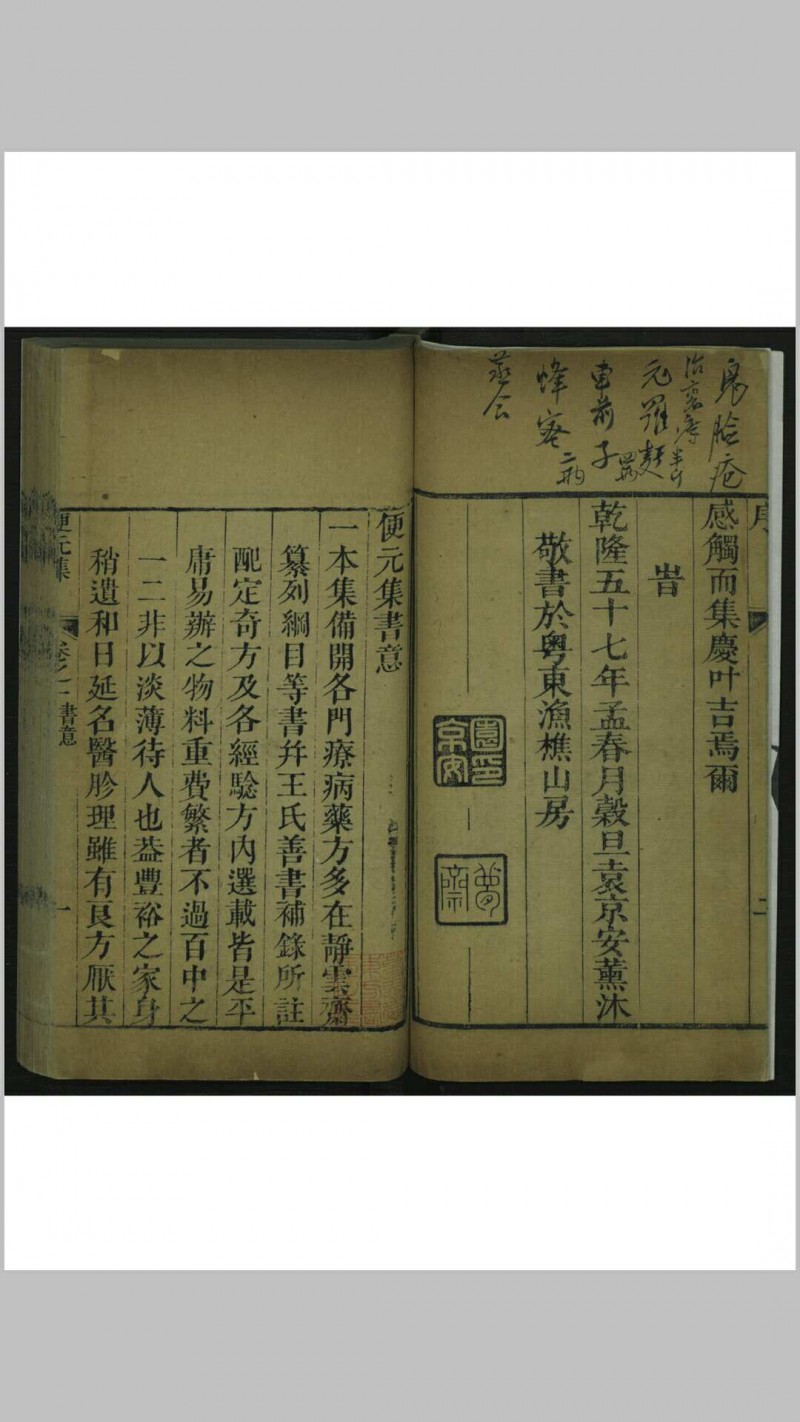 序
二
感觸而集慶叶吉焉爾
旹
乾隆五十七年孟春月穀旦袁京安薰沐
敬書於粵東漁樵山房
袁京安印
夢齋
治
車前子
蜂蜜
便元集書意
一本集備開各門療病藥方多在靜雲齋
纂列綱目等書并王氏善書補錄所註
配定奇方及各經騐方內選載皆是平
庸易辦之物料重費繁者不過百中之
一二非以淡薄待人也葢豐裕之家身
稍違和日延名醫胗理雖有良方厭其
便元集
卷之一
書意
一